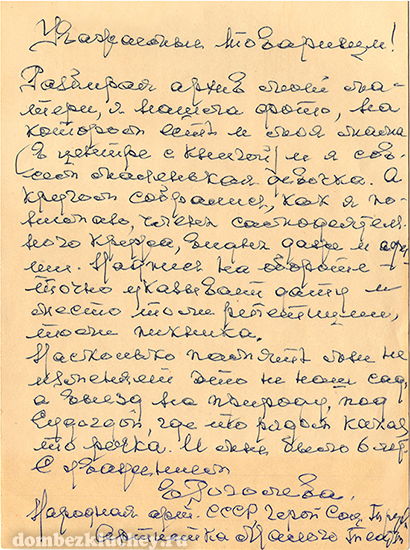 Уважаемые товарищи!
Разбирая архив моей ма-
тери, я нашла фото, на
котором есть и моя мама
(в центре с книгой) и я сов-
сем маленькая девочка. А
кругом собрались, как я по-
нимаю, члены самодеятель-
ного кружка, видны даже и
Надпись на обороте
точно указывает дату и
место то ли репетиции,
то ли пикника.
Насколько память мне не
изменяет это не наш сад,
а выезд на природу, под
Судогдой, где то рядом кака
то речка. И мне было 6 лет.
С уважением
Е Гоголева.
Народная арт. СССР Герой Соц. Труда
Артистка Малого Театра
dombezkluchey.ru